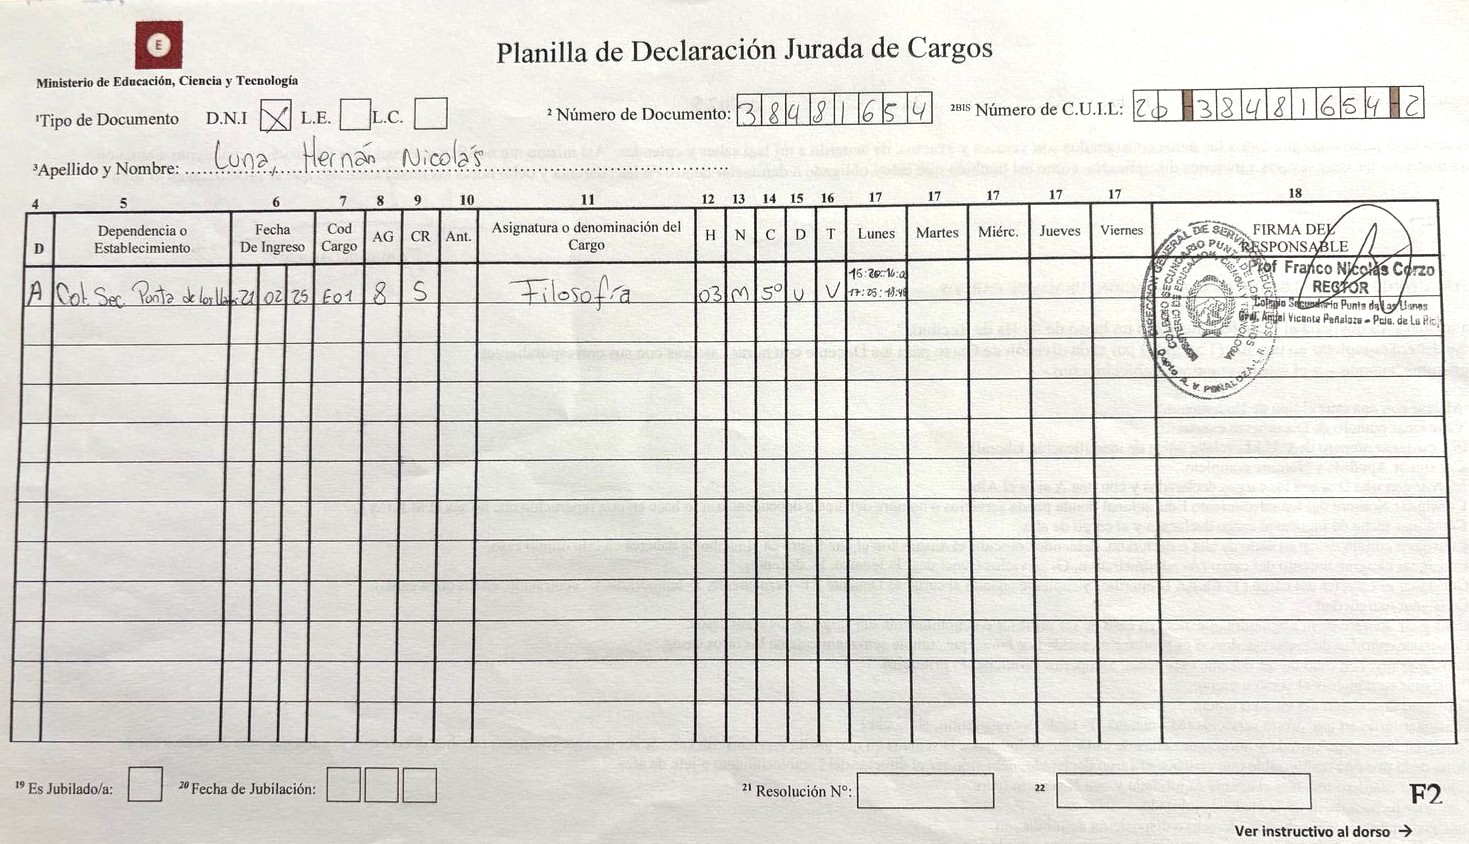 E
Planilla de Declaración Jurada de Cargos
Ministerio de Educación, Ciencia y Tecnología
¹Tipo de Documento D.N.I X L.E. L.C. ² Número de Documento: 38481654 2BIS Número de C.U.I.L: 20-38481654-2
³Apellido y Nombre: Luna, Hernán Nicolás
4 5 6 7 8 9 10 11 12 13 14 15 16 17 17 17 17 17 18
D Dependencia o Establecimiento Fecha De Ingreso Cod Cargo AG CR Ant. Asignatura o denominación del Cargo H N C D T Lunes Martes Miérc. Jueves Viernes FIRMA DEL RESPONSABLE
A Col. Sec. Punta de los 21 02 25 E01 8 S Filosofía 03 M 5º U V
Prof Franco Nicolás Corzo
RECTOR
Colegio Secundario Punta de Los Llanos
Gral. Angel Vicente Peñaloza - Pcia. de La Rioja
DIRECCIÓN GENERAL DE
COLEGIO SECUNDARIO PUNTA DE LOS
Dpto A. V. PEÑALOZA - L. R.
¹⁹ Es Jubilado/a: ²⁰ Fecha de Jubilación: ²¹ Resolución N°: ²²
F2
Ver instructivo al dorso →